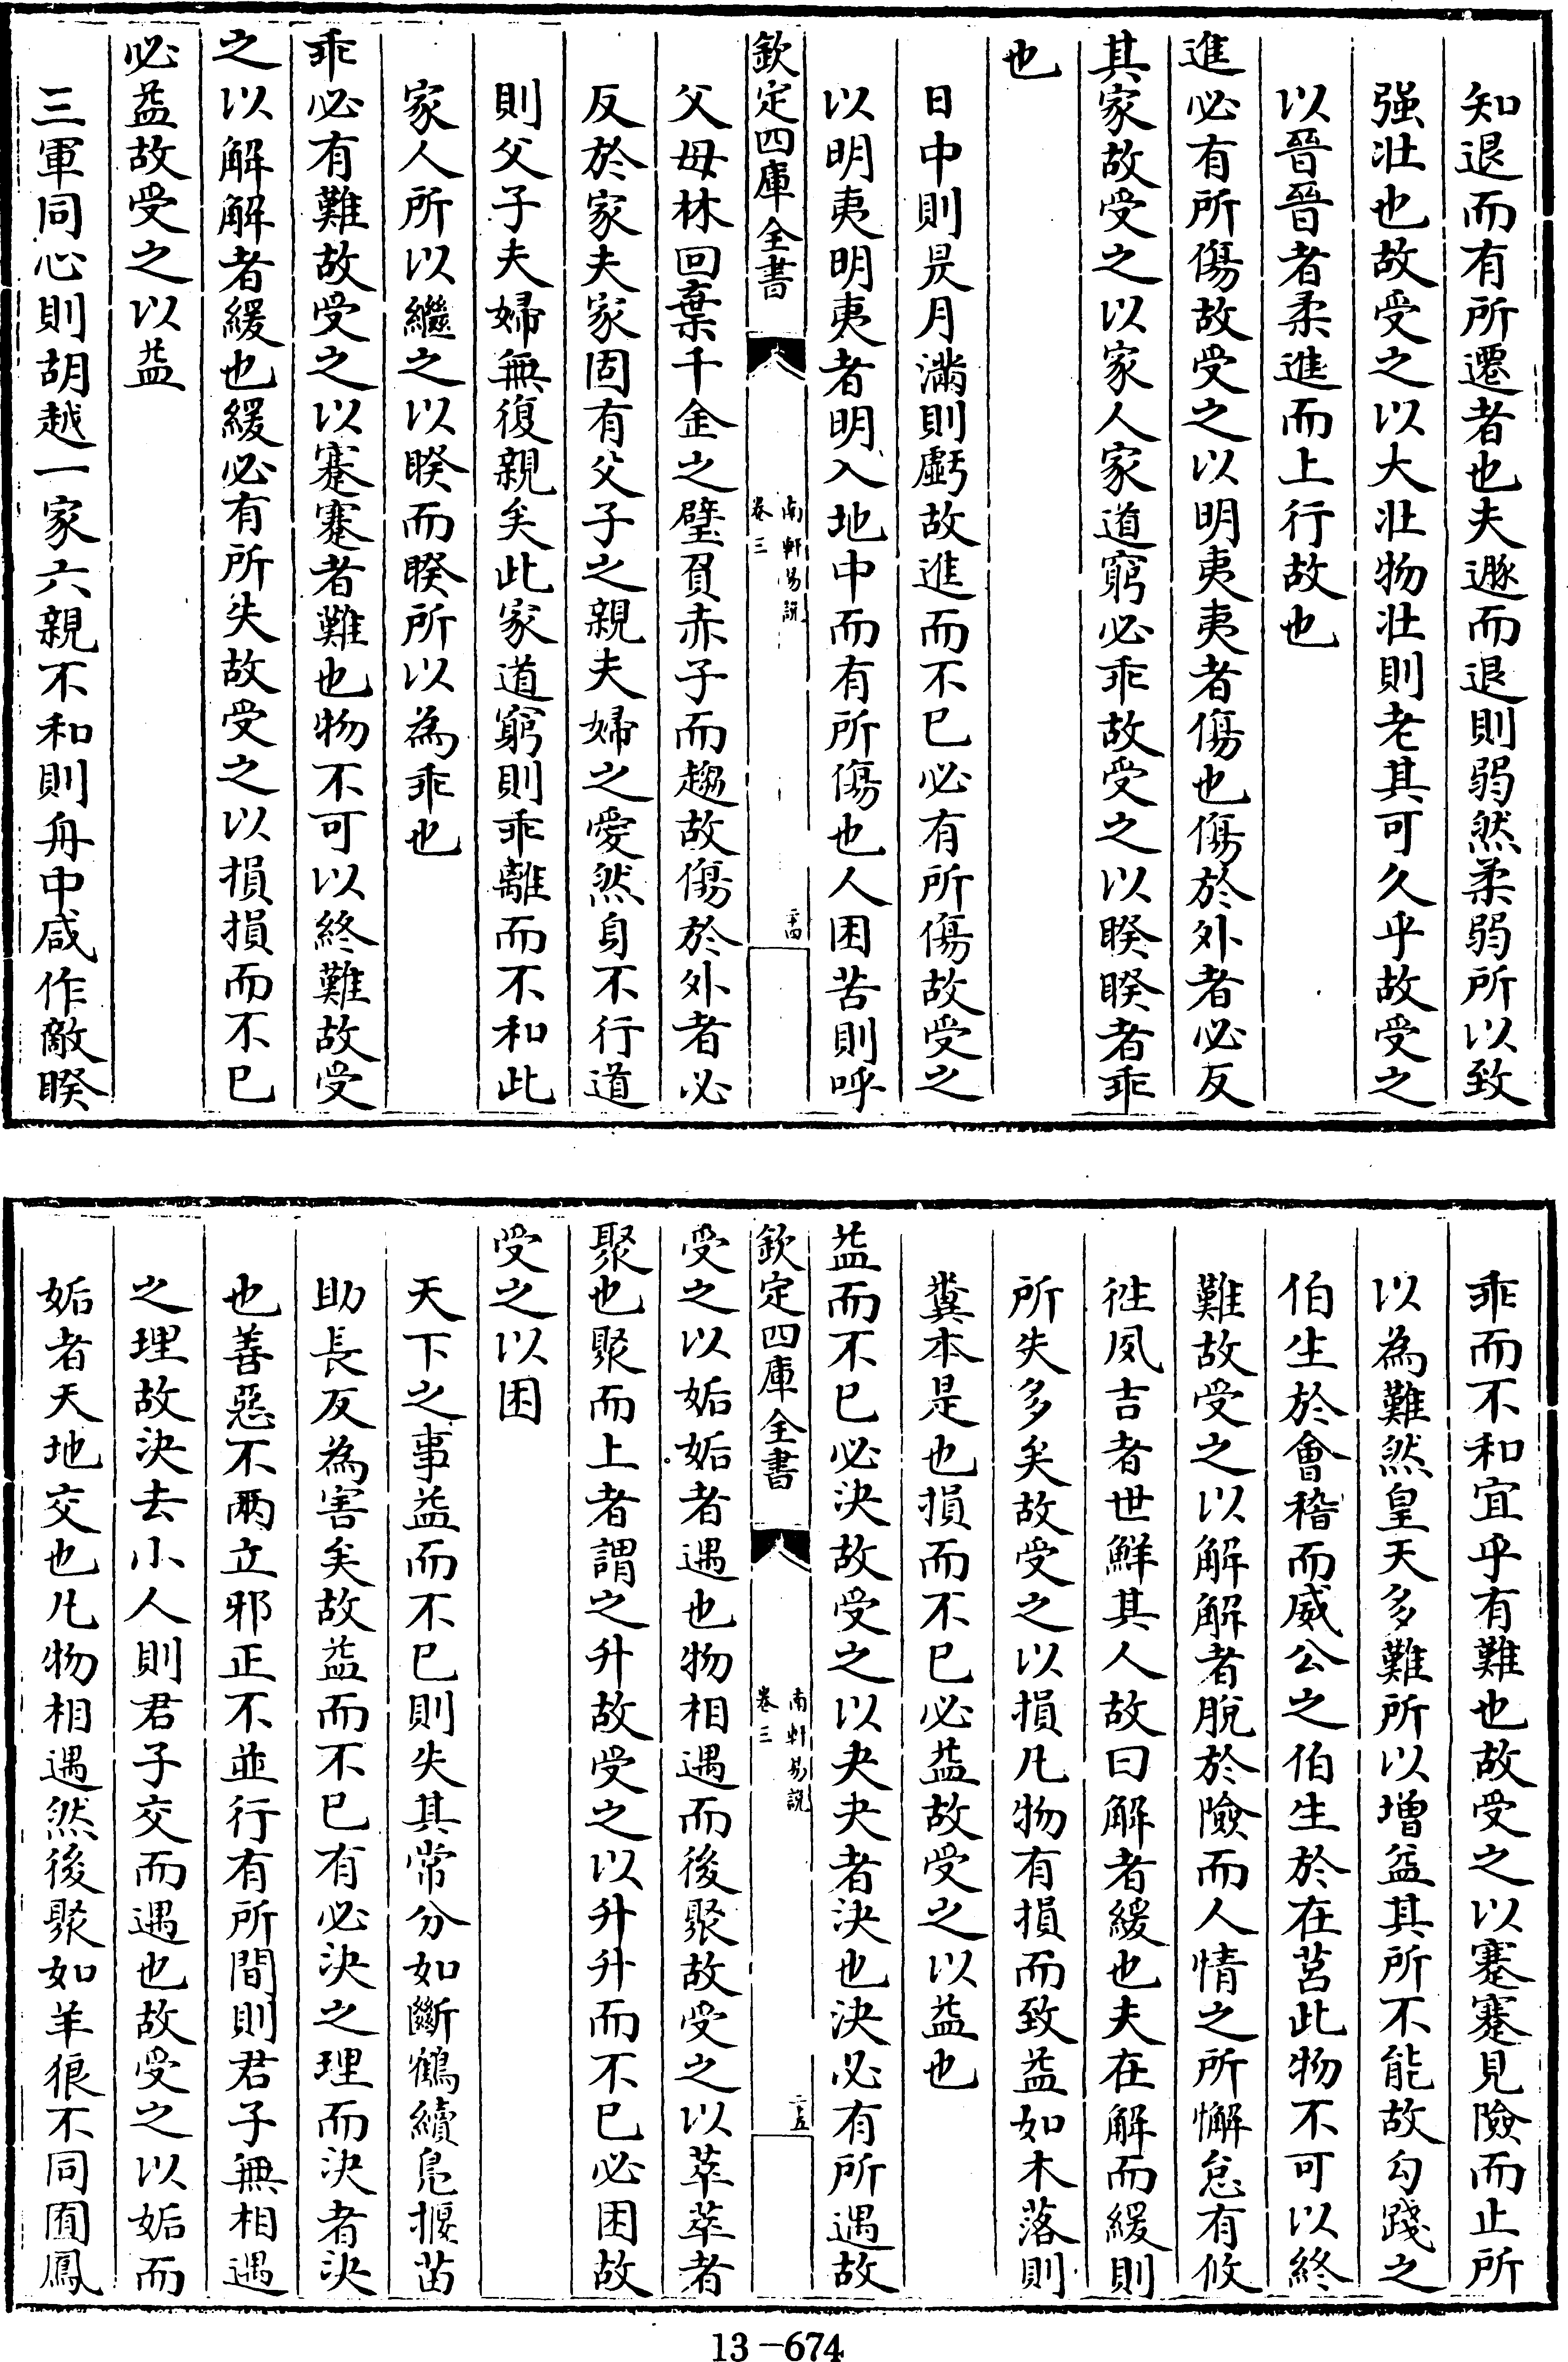 知退而有所遷者也夫遯而退則弱然柔弱所以致
强壯也故受之以大壯物壯則老其可久乎故受之
以晉晉者柔進而上行故也
進必有所傷故受之以明夷夷者傷也傷於外者必反
其家故受之以家人家道窮必乖故受之以睽睽者乖
也
日中則昃月滿則虧故進而不已必有所傷故受之
以明夷明夷者明入地中而有所傷也人困苦則呼
欽定四庫全書
南軒易說
卷三
二十四
父母林回棄千金之璧負赤子而趨故傷於外者必
反於家夫家固有父子之親夫婦之愛然身不行道
則父子夫婦無復親矣此家道窮則乖離而不和此
家人所以繼之以睽而睽所以為乖也
乖必有難故受之以蹇蹇者難也物不可以終難故受
之以解解者緩也緩必有所失故受之以損損而不已
必益故受之以益
三軍同心則胡越一家六親不和則舟中咸作敵睽
乖而不和宜乎有難也故受之以蹇蹇見險而止所
以為難然皇天多難所以增益其所不能故勾踐之
伯生於會稽而威公之伯生於在莒此物不可以終
難故受之以解解者脫於險而人情之所懈怠有攸
往夙吉者世鮮其人故曰解者緩也夫在解而緩則
所失多矣故受之以損凡物有損而致益如木落則
糞本是也損而不已必益故受之以益也
益而不已必決故受之以夬夬者決也決必有所遇故
欽定四庫全書
南軒易說
卷三
二十五
受之以姤姤者遇也物相遇而後聚故受之以萃萃者
聚也聚而上者謂之升故受之以升升而不已必困故
受之以困
天下之事益而不已則失其常分如斷鶴續鳧揠苗
助長反為害矣故益而不已有必決之理而決者決
也善惡不兩立邪正不並行有所間則君子無相遇
之理故決去小人則君子交而遇也故受之以姤而
姤者天地交也凡物相遇然後聚如羊狼不同圈鳳
13-674